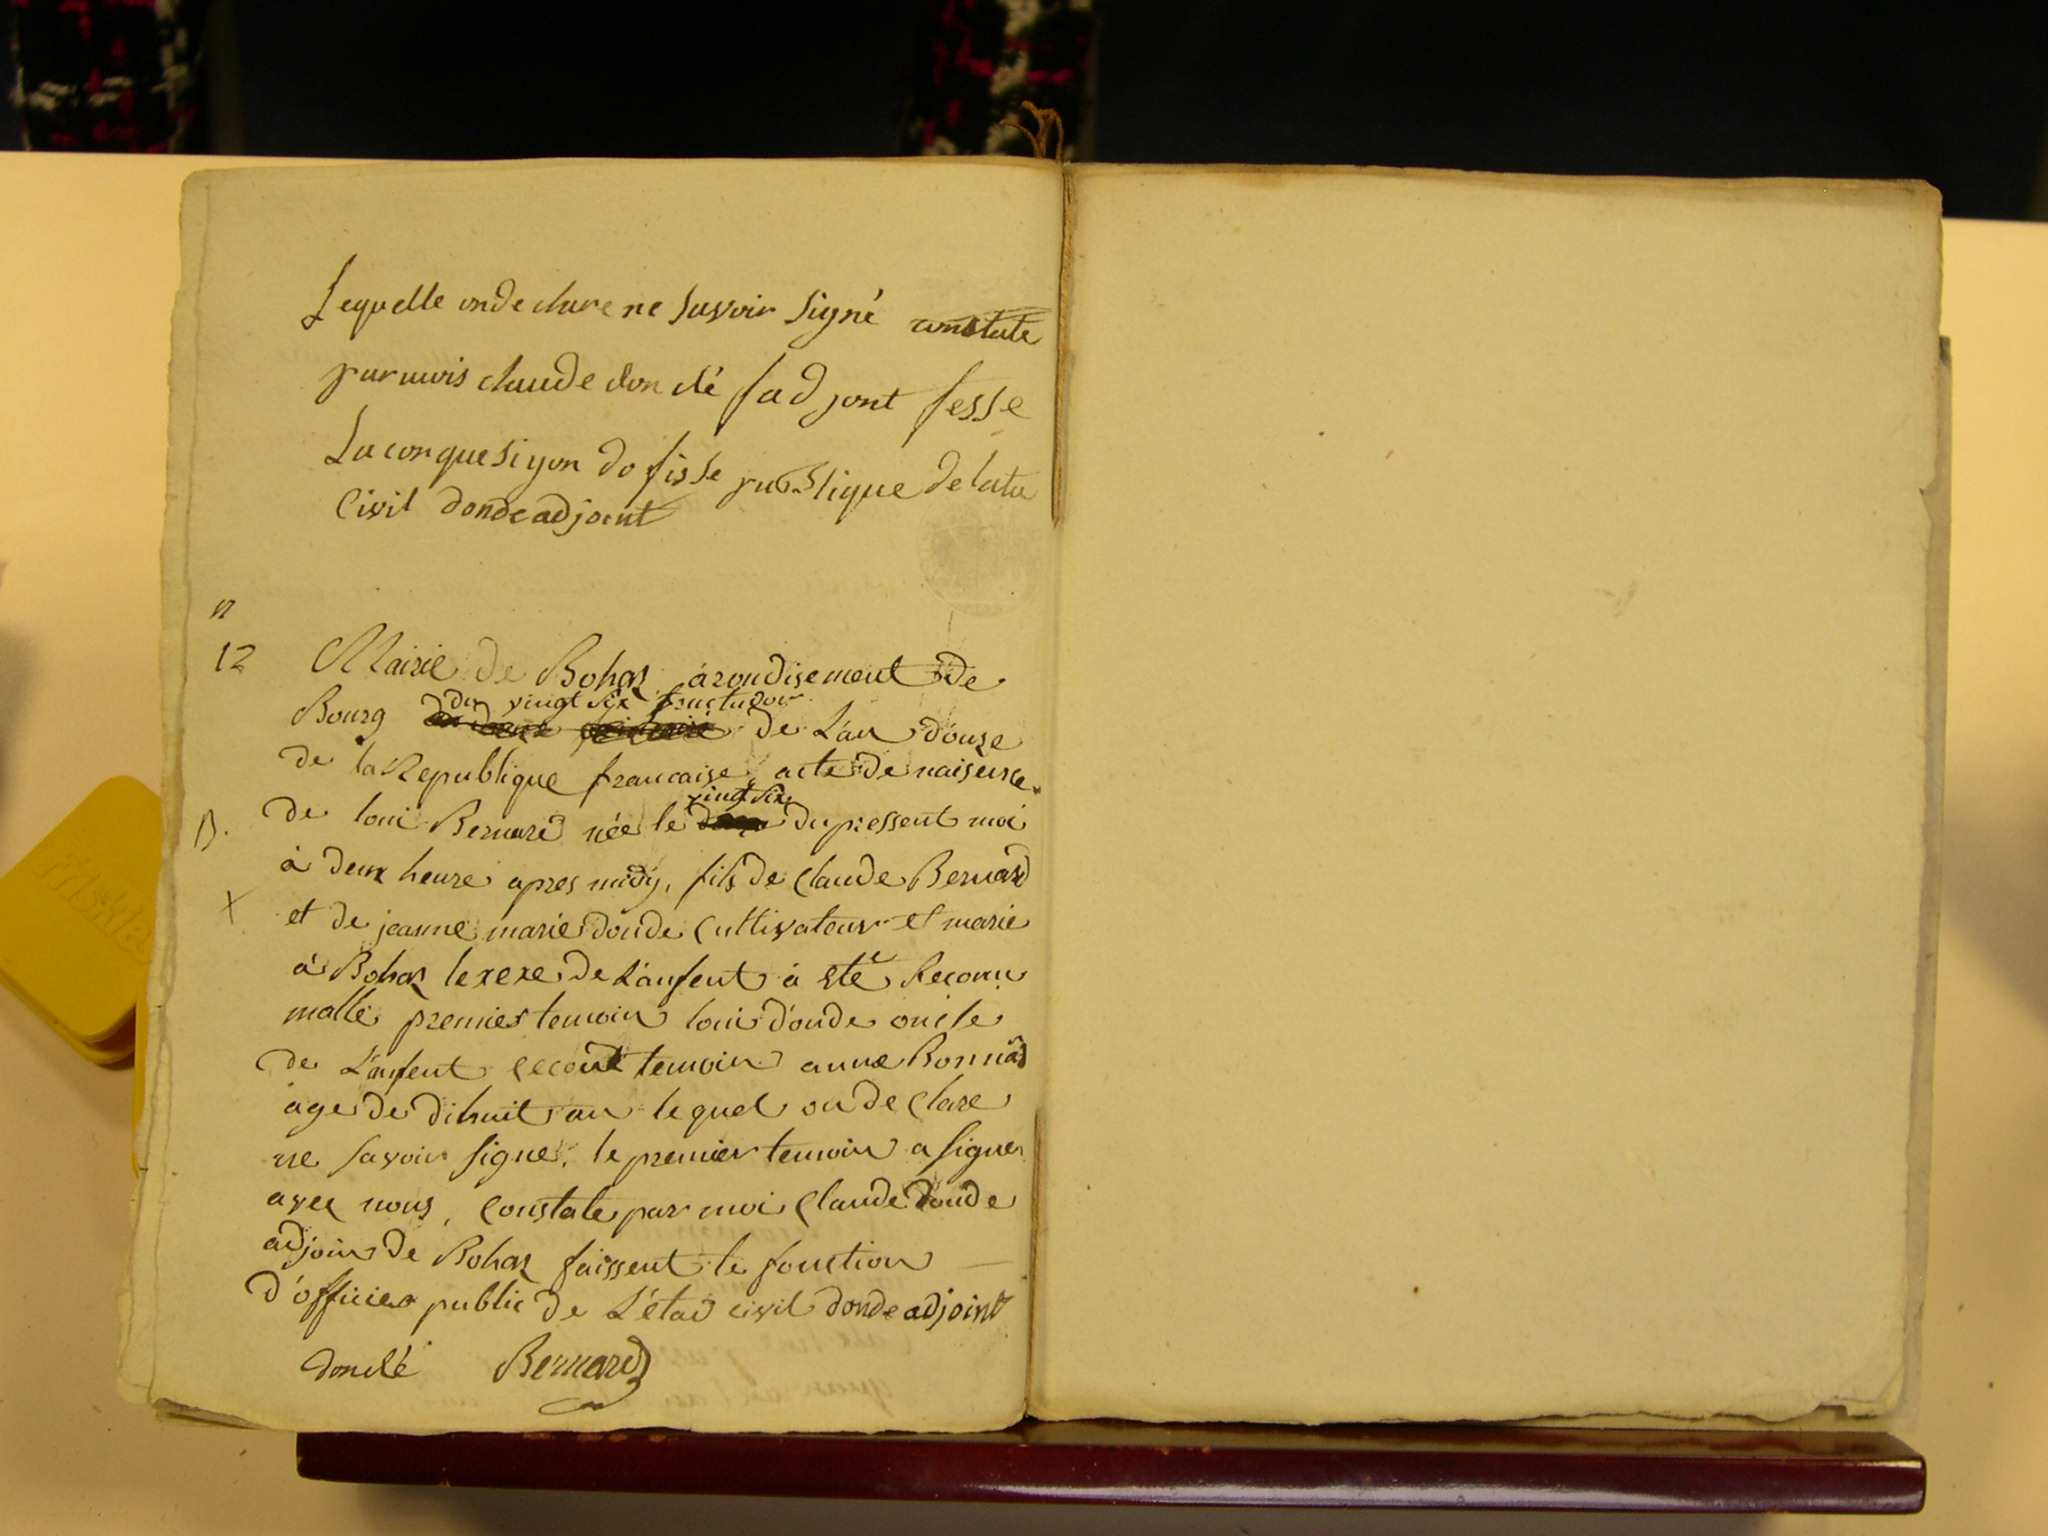 Lequelle onde clare ne savoir signé constate
par mois claude don dé fad jont fesse
La conque si yon do fisse publique de lata
Civil donde adjoint
n
12 Mairie de Bohas arondisement de
du vingt six fructudor
Bourg de L'an d'ouze
de la Republique francaise, acte de naisense
vingt six
B. de loui Bernard née le du pressent moi
à deux heure apres midy, fils de Claude Bernard
X et de jeanne marie donde Cultivateur et marie
à Bohas le xexe de L'anfent à eté Reconu
malle premier temoin loui d'onde oncle
de L'anfent second temoin anne Bonnâd
age de dihuit an lequel on de Clare
ne savoir signe, le premier temoin a signe
avec nous, Constate par moi Claude donde
adjoin de Bohas faissent le fonction
d'officier public de L'état civil donde adjoint
dondé Bernard